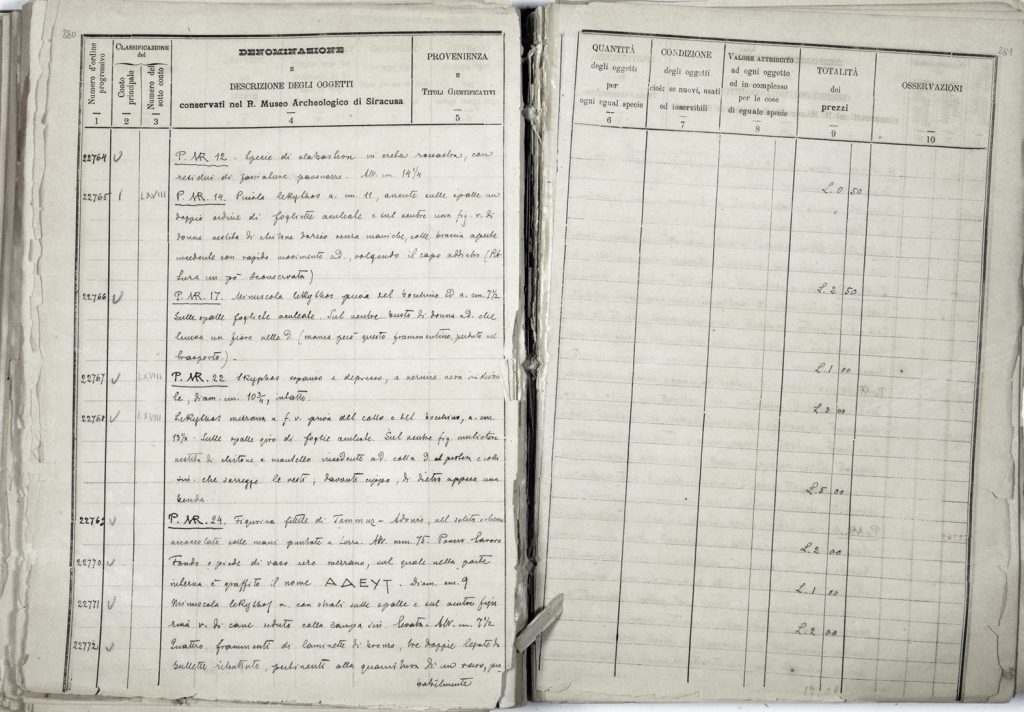 280
Numero d'ordine progressivo
CLASSIFICAZIONE del
Conto principale
Numero del sotto conto
DENOMINAZIONE
E
DESCRIZIONE DEGLI OGGETTI
conservati nel R. Museo Archeologico di Siracusa
PROVENIENZA
E
TITOLI GIUSTIFICATIVI
1 2 3 4 5
22764 P. NR. 12. Specie di alabastron in creta rossastra, con
residui di fasciature paonazze. Alt. cm. 14 1/4
22765 1 LXVIII P. NR. 14. Piccola lekythos a. cm. 11, avente sulle spalle un
doppio ordine di fogliette aculeate e sul ventre una fig. r. di
donna vestita di chitone dorico senza maniche, colle braccia aperte
incedente con rapido movimento a d., volgendo il capo addietro (Pit-
tura un pò sconservata)
22766 P. NR. 17. Minuscola lekythos priva del bocchino ed a. cm. 7 1/2
Sulle spalle fogliche aculeate. Sul ventre busto di donna a d. che
teneva un fiore nella d. (manca però questo frammentino, perduto nel
trasporto). -
22767 LXVIII P. NR. 22 Skyphos espanso e depresso, a vernice nera
le, diam. cm. 10 3/4, intatto.
22768 LXVIII Lekythos mezzana a f. r. priva del collo e del bocchino, a. cm.
13 1/2. Sulle spalle giro di foglie aculeate. Sul ventre fig. muliebre
vestita di chitone e mantello incedente a d. colla d. protesa e colla
sin. che sorregge le vesti; davanti cippo, di dietro appesa una
benda.
22769 P. NR. 24. Figurina fittile di Tammuz - Adonis, nel solito schema
accoccolato colle mani puntate a terra. Alt. mm. 75. Povero lavoro
22770 Fondo e piede di vaso nero mezzano, sul quale nella parte
interna è graffito il nome ΑΔΕΥΤ. Diam. cm. 9
22771 Minuscola lekythos n. con ovoli sulle spalle e sul ventre figu
rina r. di cane seduto colla zampa sin. levata. Alt. cm. 7 1/2
22772 Quattro frammenti di laminette di bronzo, tre doppie legate da
bullette ribattute, pertinenti alla guarnitura di un vaso, pro
babilmente
281
QUANTITÀ
degli oggetti
per
ogni egual specie
CONDIZIONE
degli oggetti
cioè: se nuovi, usati
od inservibili
VALORE ATTRIBUITO
ad ogni oggetto
ed in complesso
per le cose
di eguale specie
TOTALITÀ
dei
prezzi
OSSERVAZIONI
6 7 8 9 10
L. 0 50
L. 2 50
L. 1 00
L. 2 00
L. 5 00
L. 2 00
L. 1 00
L. 2 00